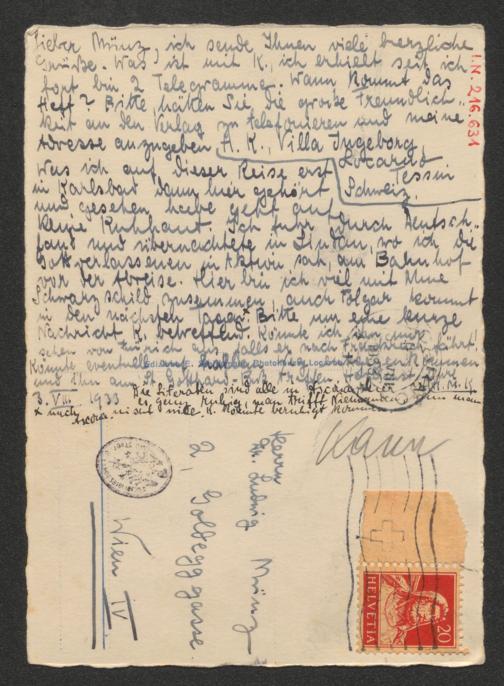 Lieber Münz, ich sende Ihnen viele herzliche
Grüße. Was ist mit K., ich erhielt seit ich
fort bin, 2 Telegramme. Wann kommt das
Heft? Bitte, hätten Sie die große Freundlich-
keit an den Verlag zu telefonieren und meine
Adresse anzugeben H. K., Villa Ingeborg
Locarno
Tessin
Schweiz.
Was ich auf dieser Reise erst
in Karlsbad dann hier gehört
und gesehen habe geht auf
keine Kuhhaut. Ich fuhr durch Deutsch-
land und übernachtete in Lindau, wo ich die
Gottverlassenen in Aktion sah, am Bahnhof
vor der Abreise. Hier bin ich viel mit Mme
Schwarzschild zusammen, auch Polgar kommt
in den nächsten Tagen. Bitte um eine kurze
Nachricht K. betreffend. Könnte ich ihn nur
sehen vor Zürich aus falls er nach Frankreich fährt!
Könnte eventuell
und ihn am St. Gotthard
3. VIII. 1933
Die Literaten sind alle in Ascona
man trifft Niemanden wenn man
nach
Ascona nicht will. K. könnte beruhigt kommen
H. M. K.
I.N. 216.631
Kann
Herrn
Dr. Ludwig Münz
2, Goldeggasse
Wien IV
HELVETIA
20